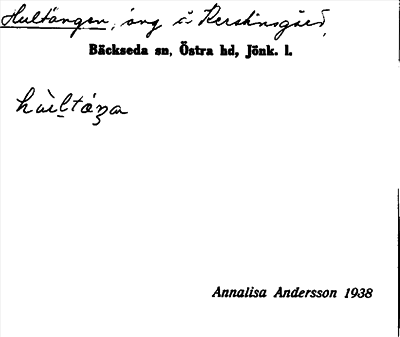 Hultängen, äng å Kerstinsgård,
Bäckseda sn, Östra hd, Jönk. l.
Annalisa Andersson 1938